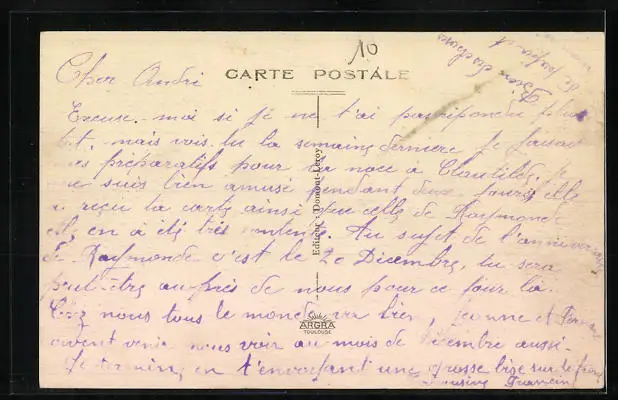 10
CARTE POSTALE
Cher André
Excuse-moi si je ne t'ai pas repondu plus
tôt, mais vois-tu la semaine dernière je faisait
des preparatifs pour la noce à Clautilde, je
me suis bien amusé pendant deux jours elle
a reçu ta carte ainsi que celle de Raymonde
elle en à été très contente. Au sujet de l'anniversaire
de Raymonde c'est le 20 Décembre, tu sera
peut-être au près de nous pour ce jour là.
Chez nous tous le monde va bien, Jeanne et
doivent venir nous voir au mois de décembre aussi
Je termine, en t'envoyant une grosse bise sur le front
Bien des choses
de
Editeur : Domont-Leroy
ARGRA
TOULOUSE